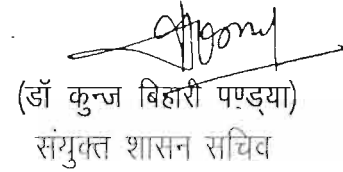 (डॉ कुन्ज बिहारी पण्ड्या)
संयुक्त शासन सचिव